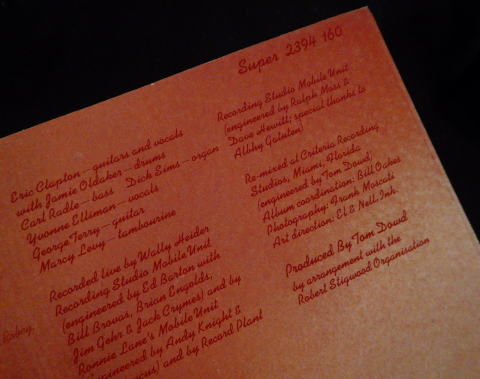 Super 2394 160
Eric Clapton—guitars and vocals
with Jamie Oldaker—drums
Carl Radle—bass Dick Sims—organ
Yvonne Elliman—vocals
George Terry—guitar
Marcy Levy—tambourine
Recorded live by Wally Heider
Recording Studio Mobile Unit
(engineered by Ed Barton with
Bill Brovas, Brian Engolds,
Jim Gehr & Jack Crymes) and by
Ronnie Lane's Mobile Unit
engineered by Andy Knight &
and by Record Plant
Recording Studio Mobile Unit
(engineered by Ralph Moss &
Dave Hewitt; special thanks to
Albhy Galuten)
Re-mixed at Criteria Recording
Studios, Miami, Florida
(engineered by Tom Dowd)
Album coordination: Bill Oakes
Photography: Frank Moscati
Art direction: El & Nell. Ink.
Produced By Tom Dowd
by arrangement with the
Robert Stigwood Organisation